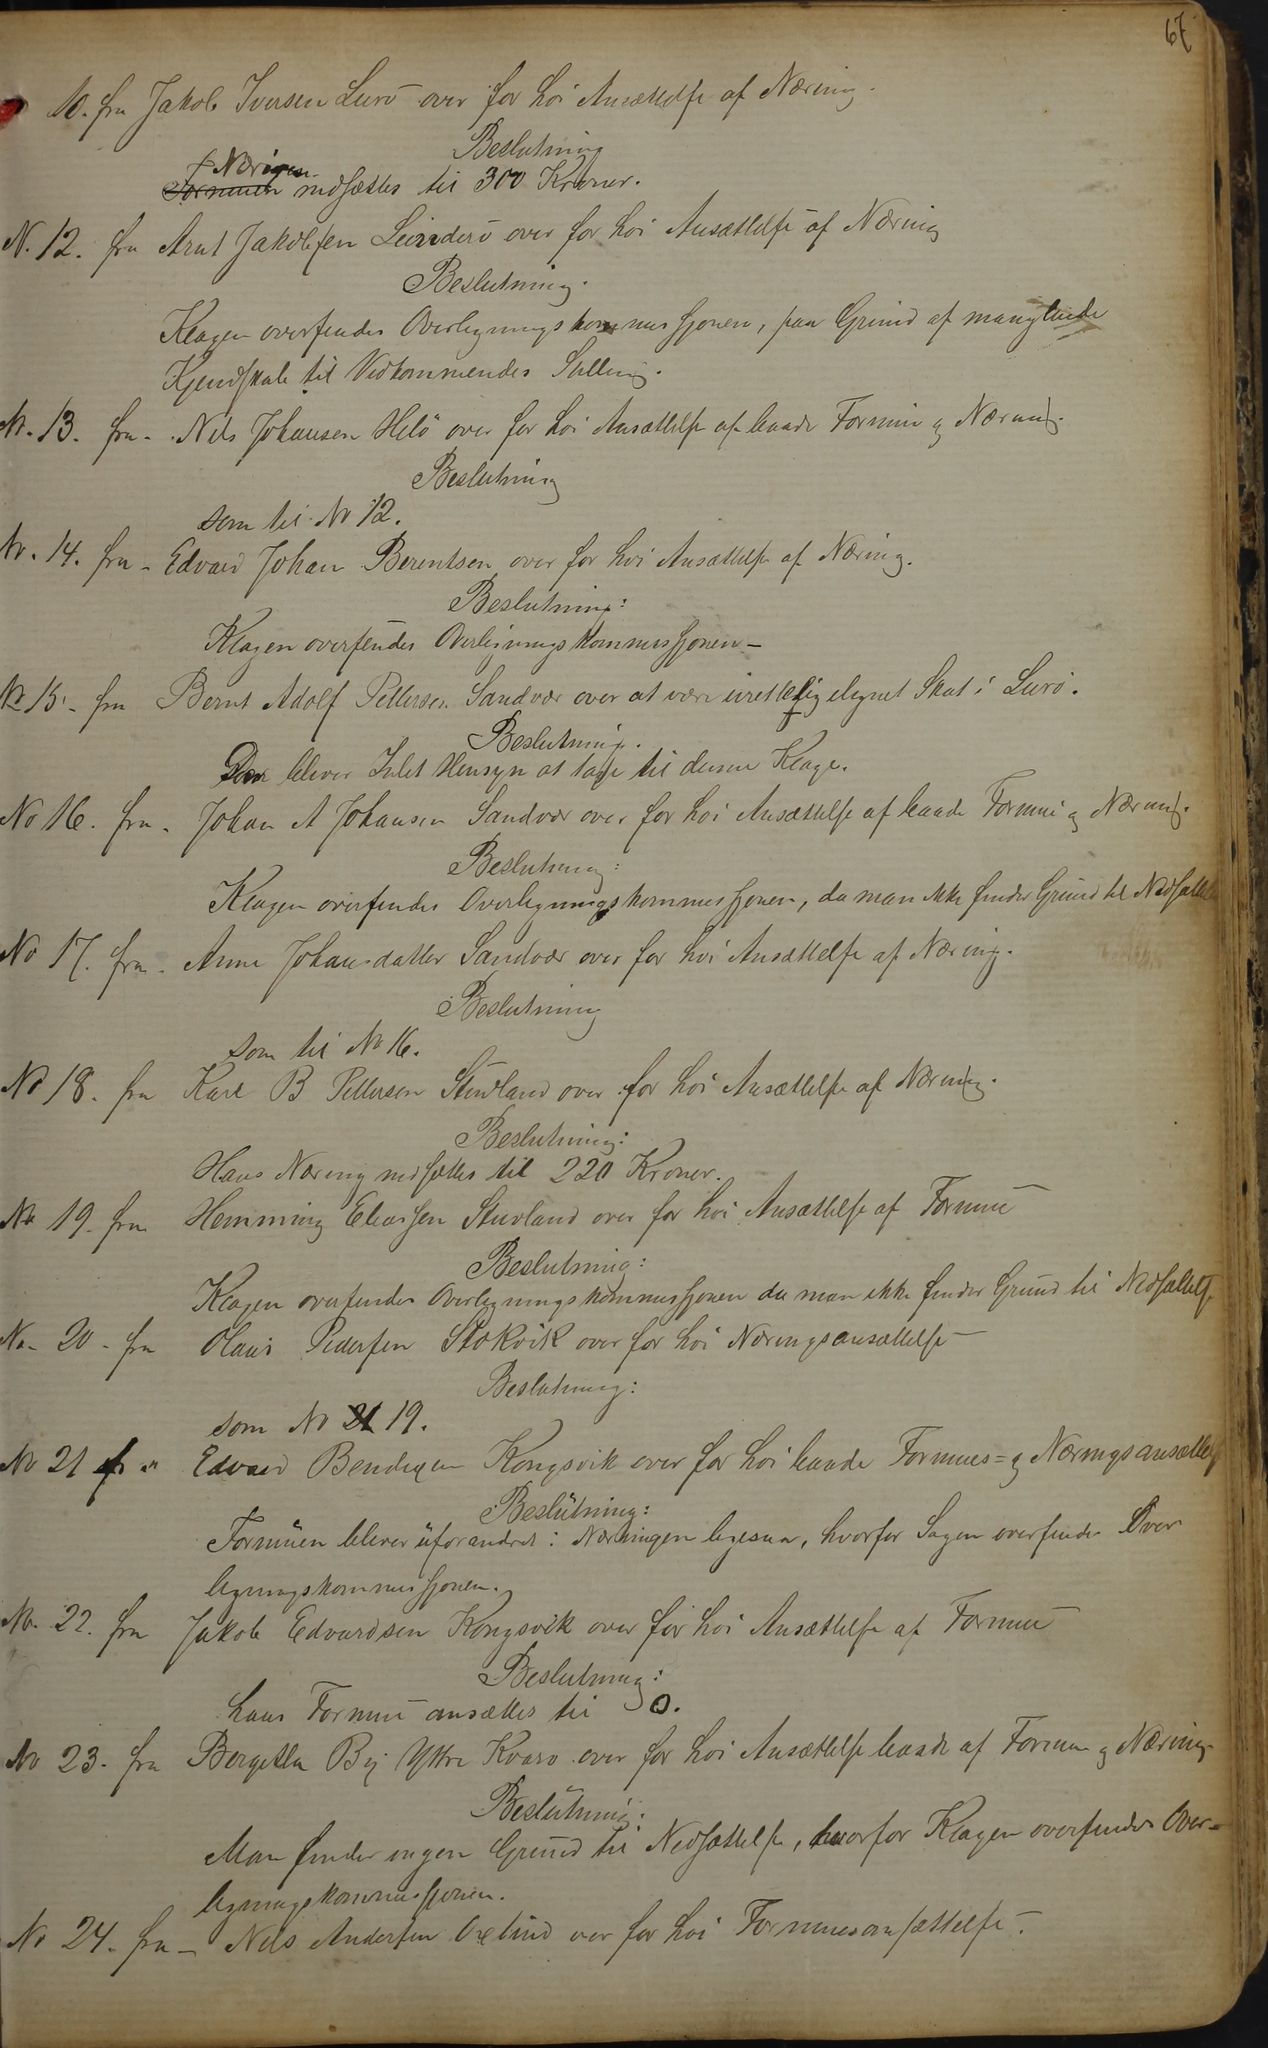 67
10. fra Jakob Iversen Lurö over for høi Ansættelse af Næring.
Beslutning
Næringen
Formuen nedsættes til 300 Kroner.
N. 12. fra Arnt Jakobsen over for høi Ansættelse af Næring
Beslutning.
Klagen oversendes Overligningskommissjonen, paa Grund af manglende
Kjendskab til Vedkommendes Stilling.
N. 13. fra - Nils Johansen Helö over for høi Ansættelse af baade Formue og Næring.
Beslutning
som til No 12.
No. 14. fra - Edvard Johan Berentsen over for høi Ansættelse af Næring.
Beslutning:
Klagen oversendes Overligningskommissjonen -
No 15. - fra Bernt Adolf Pettersen Sandvær over at være urettelig ilignet Skat i Lurö.
Beslutning.
Der bliver Intet Hensyn at tage til denne Klage.
No 16. fra - Johan A Johansen Sandvær over for høi Ansættelse af baade Formue og Næring.
Beslutning:
Klagen oversendes Overligningskommissjonen, da man ikke finder Grund til Nedsættelse
No 17. fra - Anne Johansdatter Sandvær over for høi Ansættelse af Næring.
Beslutning
som til No 16.
No 18. fra Karl B Pettersen Stuvland over for høi Ansættelse af Næring.
Beslutning:
Hans Næring nedsættes til 220 Kroner.
No 19. fra Hemming Eliassen Stuvland over for høi Ansættelse af Formue
Beslutning:
Klagen oversendes Overligningskommissjonen da man ikke finder Grund til Nedsættelse
No - 20 - fra Olaus Pedersen Stokvik over for høi Næringsansættelse
Beslutning:
som No 21 19.
No 21 fr " Edvard Bendixen Kongsvik over for høi baade Formues= og Næringsansættelse
Beslutning:
Formuen bliver uforandret: Næringen ligesaa, hvorfor Sagen oversendes Over
ligningskommissjonen.
No. 22. fra Jakob Edvardsen Kongsvik over for høi Ansættelse af Formue
Beslutning:
hans Formue ansættes til 0.
No 23. fra Bergitha Bg Ytre Kvarö over for høi Ansættelse baade af Formue og Næring
Beslutning:
Man finder ingen Grund til Nedsættelse, hvorfor Klagen oversendes Over-
ligningskommissjonen.
No 24. fra - Nils Andersen over for høi Formuesansættelse.